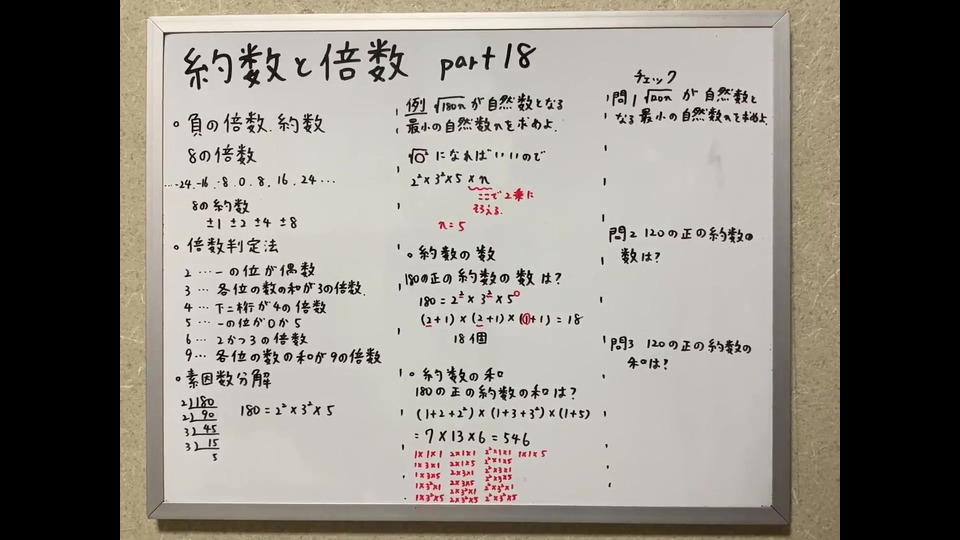 約数と倍数 part 18
。負の倍数.約数
8の倍数
…-24.-16.-8.0.8.16.24…
8の約数
±1 ±2 ±4 ±8
。倍数判定法
2…一の位が偶数
3…各位の数の和が3の倍数.
4…下二桁が4の倍数
5…一の位が0か5
6…2かつ3の倍数
9…各位の数の和が9の倍数
。素因数分解
2)180
2)90
3)45
3)15
5
180=2²×3²×5
例 √180n が自然数となる
最小の自然数nを求めよ.
√□² になればいいので
2²×3²×5×n
ここで2乗に
そろえる.
n=5
。約数の数
180の正の約数の数は?
180=2²×3²×5⁰
(2+1)×(2+1)×(1+1)=18
18個
。約数の和
180の正の約数の和は?
(1+2+2²)×(1+3+3²)×(1+5)
=7×13×6=546
1×1×1 2×1×1 2²×1×1 1×1×5
1×3×1 2×1×5 2²×1×5
1×3×5 2×3×1 2²×3×1
1×3²×1 2×3×5 2²×3×5
1×3²×5 2×3²×1 2²×3²×1
2×3²×5 2²×3²×5
チェック
問1 √120n が自然数と
なる最小の自然数nを求めよ.
問2 120の正の約数の
数は?
問3 120の正の約数の
和は?